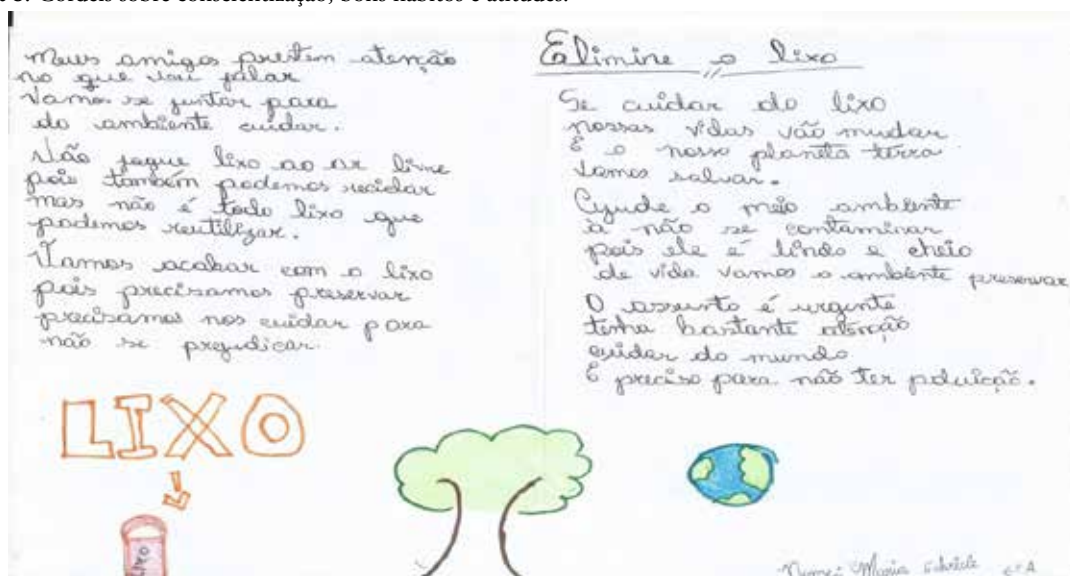 Cordéis sobre conscientização, bons hábitos e atitudes.
Meus amigos prestem atenção
no que vou falar
Vamos se juntar para
do ambiente cuidar.
Não jogue lixo ao ar livre
pois também podemos reciclar
mas não é todo lixo que
podemos reutilizar.
Vamos acabar com o lixo
pois precisamos preservar
precisamos nos cuidar para
não se prejudicar.
LIXO
LIXO
Elimine o lixo
Se cuidar do lixo
nossas vidas vão mudar
E o nosso planeta terra
vamos salvar.
Ajude o meio ambiente
à não se contaminar
pois ele é lindo e cheio
de vida vamos o ambiente preservar
O assunto é urgente
tenha bastante atenção
cuidar do mundo
É preciso para não ter poluição.
Nome: Maria